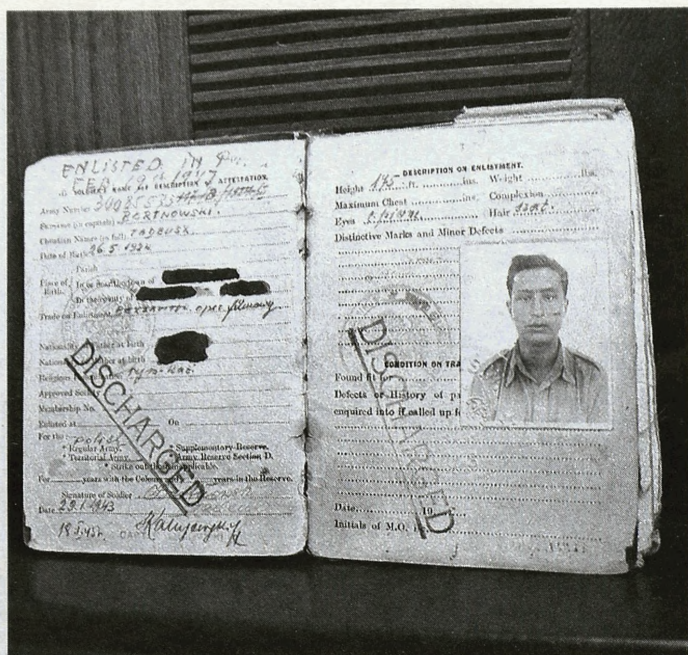 ENLISTED IN
1943
SOLDIER'S NAME AND DESCRIPTION ATTESTATION.
Army Number 30085535
Surname (in capitals) BERTNOWSKI.
Christian Names (in full) TADEUSZ.
Date of Birth 26.5.1924
Parish
Place of Birth. In or near the town of
In the county of
Trade on Enlistment
Nationality of Father at birth
Nationality of Mother at birth
Religious
Approved Society
Membership No.
Enlisted at On
For the Polish
* Regular Army. * Supplementary Reserve.
* Territorial Army. * Army Reserve Section D.
* Strike out those inapplicable.
For years with the Colours and years in the Reserve.
Signature of Soldier
Date 29.1.1943
DISCHARGED
DESCRIPTION ON ENLISTMENT.
Height 175 ft. ins. Weight lbs.
Maximum Chest ins. Complexion
Eyes Hair
Distinctive Marks and Minor Defects
CONDITION ON TRA
Found fit for
Defects or History of pa
enquired into if called up f
Date 19
Initials of M.O.
DISCHARGED